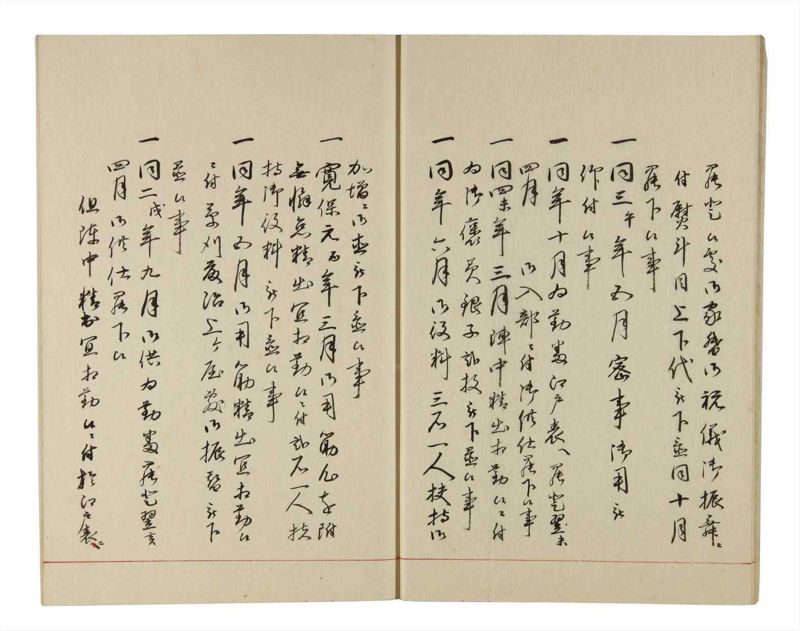 罷登候処御家督御祝儀御振舞ニ
付熨斗目上下代被下置同十月
罷下候事
一同三午年五月密事御用被
仰付候事
一同年十月為勤番江戸表へ罷登翌未
四月 御入部ニ付御供仕罷下候事
一同四未年三月陣中精出相勤候ニ付
為御褒美銀子弐枚被下置候事
一同年六月御役料三石一人扶持御
加増ニ御直被下置候事
一寛保元酉年三月御用筋
無懈怠精出宜相勤候ニ付弐石一人扶
持御役料被下置候事
一同年五月御用筋精出宜相勤候
ニ付 被下
置候事
一同二戌年九月御供為勤番罷登翌亥
四月御供仕罷下候
但陣中精出宜相勤候ニ付於江戸表ニ